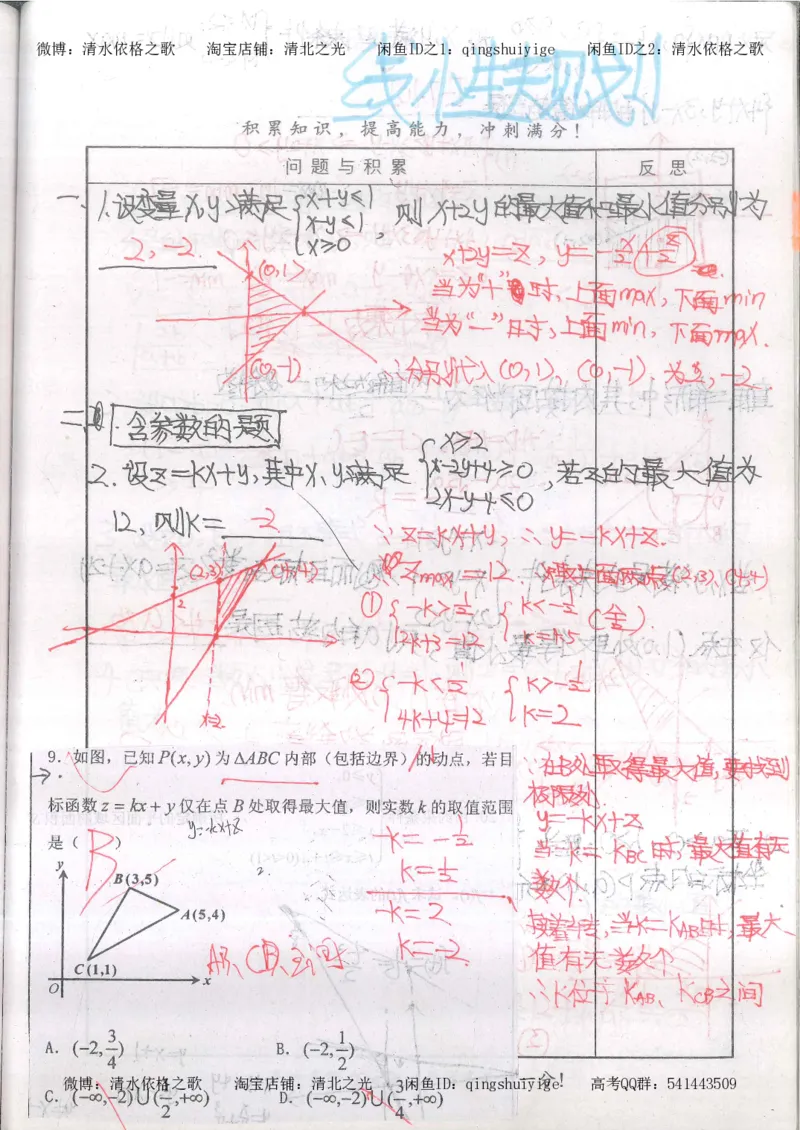 微博:清水依格之歌 淘宝店铺:清北之光 闲鱼ID之1:qingshuiyige 闲鱼ID之2:清水依格之歌
线性规划
积累知识,提高能力,冲刺满分!
问题与积累 反思
一、1.设变量x,y满足{x+y≤1 x-y≤1 x≥0 则x+2y的最大值和最小值分别为
2,-2.
x+2y=z, y=-x/2+z/2
(0,1)
当为"+"时,上面max,下面min
当为"-"时,上面min,下面max.
(0,-1)
∴分别代入(0,1),(0,-1)为2,-2
二 含参数的题
2.设z=kx+y,其中x、y满足{x≥2 x-2y+4≥0 2x-y-4≤0,若z的最大值为
12,则k= 2
∵z=kx+y,∴y=-kx+z.
(2,3) (4,4)
Zmax=12. 上面两点(2,3),(4,4)
2
① {-k>1/2 2k+3=12 {k<-1/2 k=4.5 (舍)
② {-k<1/2 4k+4=12 {k>-1/2 k=2
x=2
9.如图,已知P(x,y)为ΔABC内部(包括边界)的动点,若目
标函数z=kx+y仅在点B处取得最大值,则实数k的取值范围
是( B )
y=-kx+z
∵在B处取得最大值,要找到
极限处.
y=-kx+z
当-k=kBC时,最大值有无
数个.
接着,当-k=kAB时,最大
值有无数个
∴k位于kAB、kCB之间
-k=-1/2
k=1/2
-k=2
k=-2
AB、CB之间
y
B(3,5)
A(5,4)
C(1,1)
O x
A. (-2,3/4) B. (-2,1/2)
C. (-∞,-2)∪(1/2,+∞) D. (-∞,-2)∪(3/4,+∞)
分!
微博:清水依格之歌 淘宝店铺:清北之光 闲鱼ID:qingshuiyige 高考QQ群:541443509